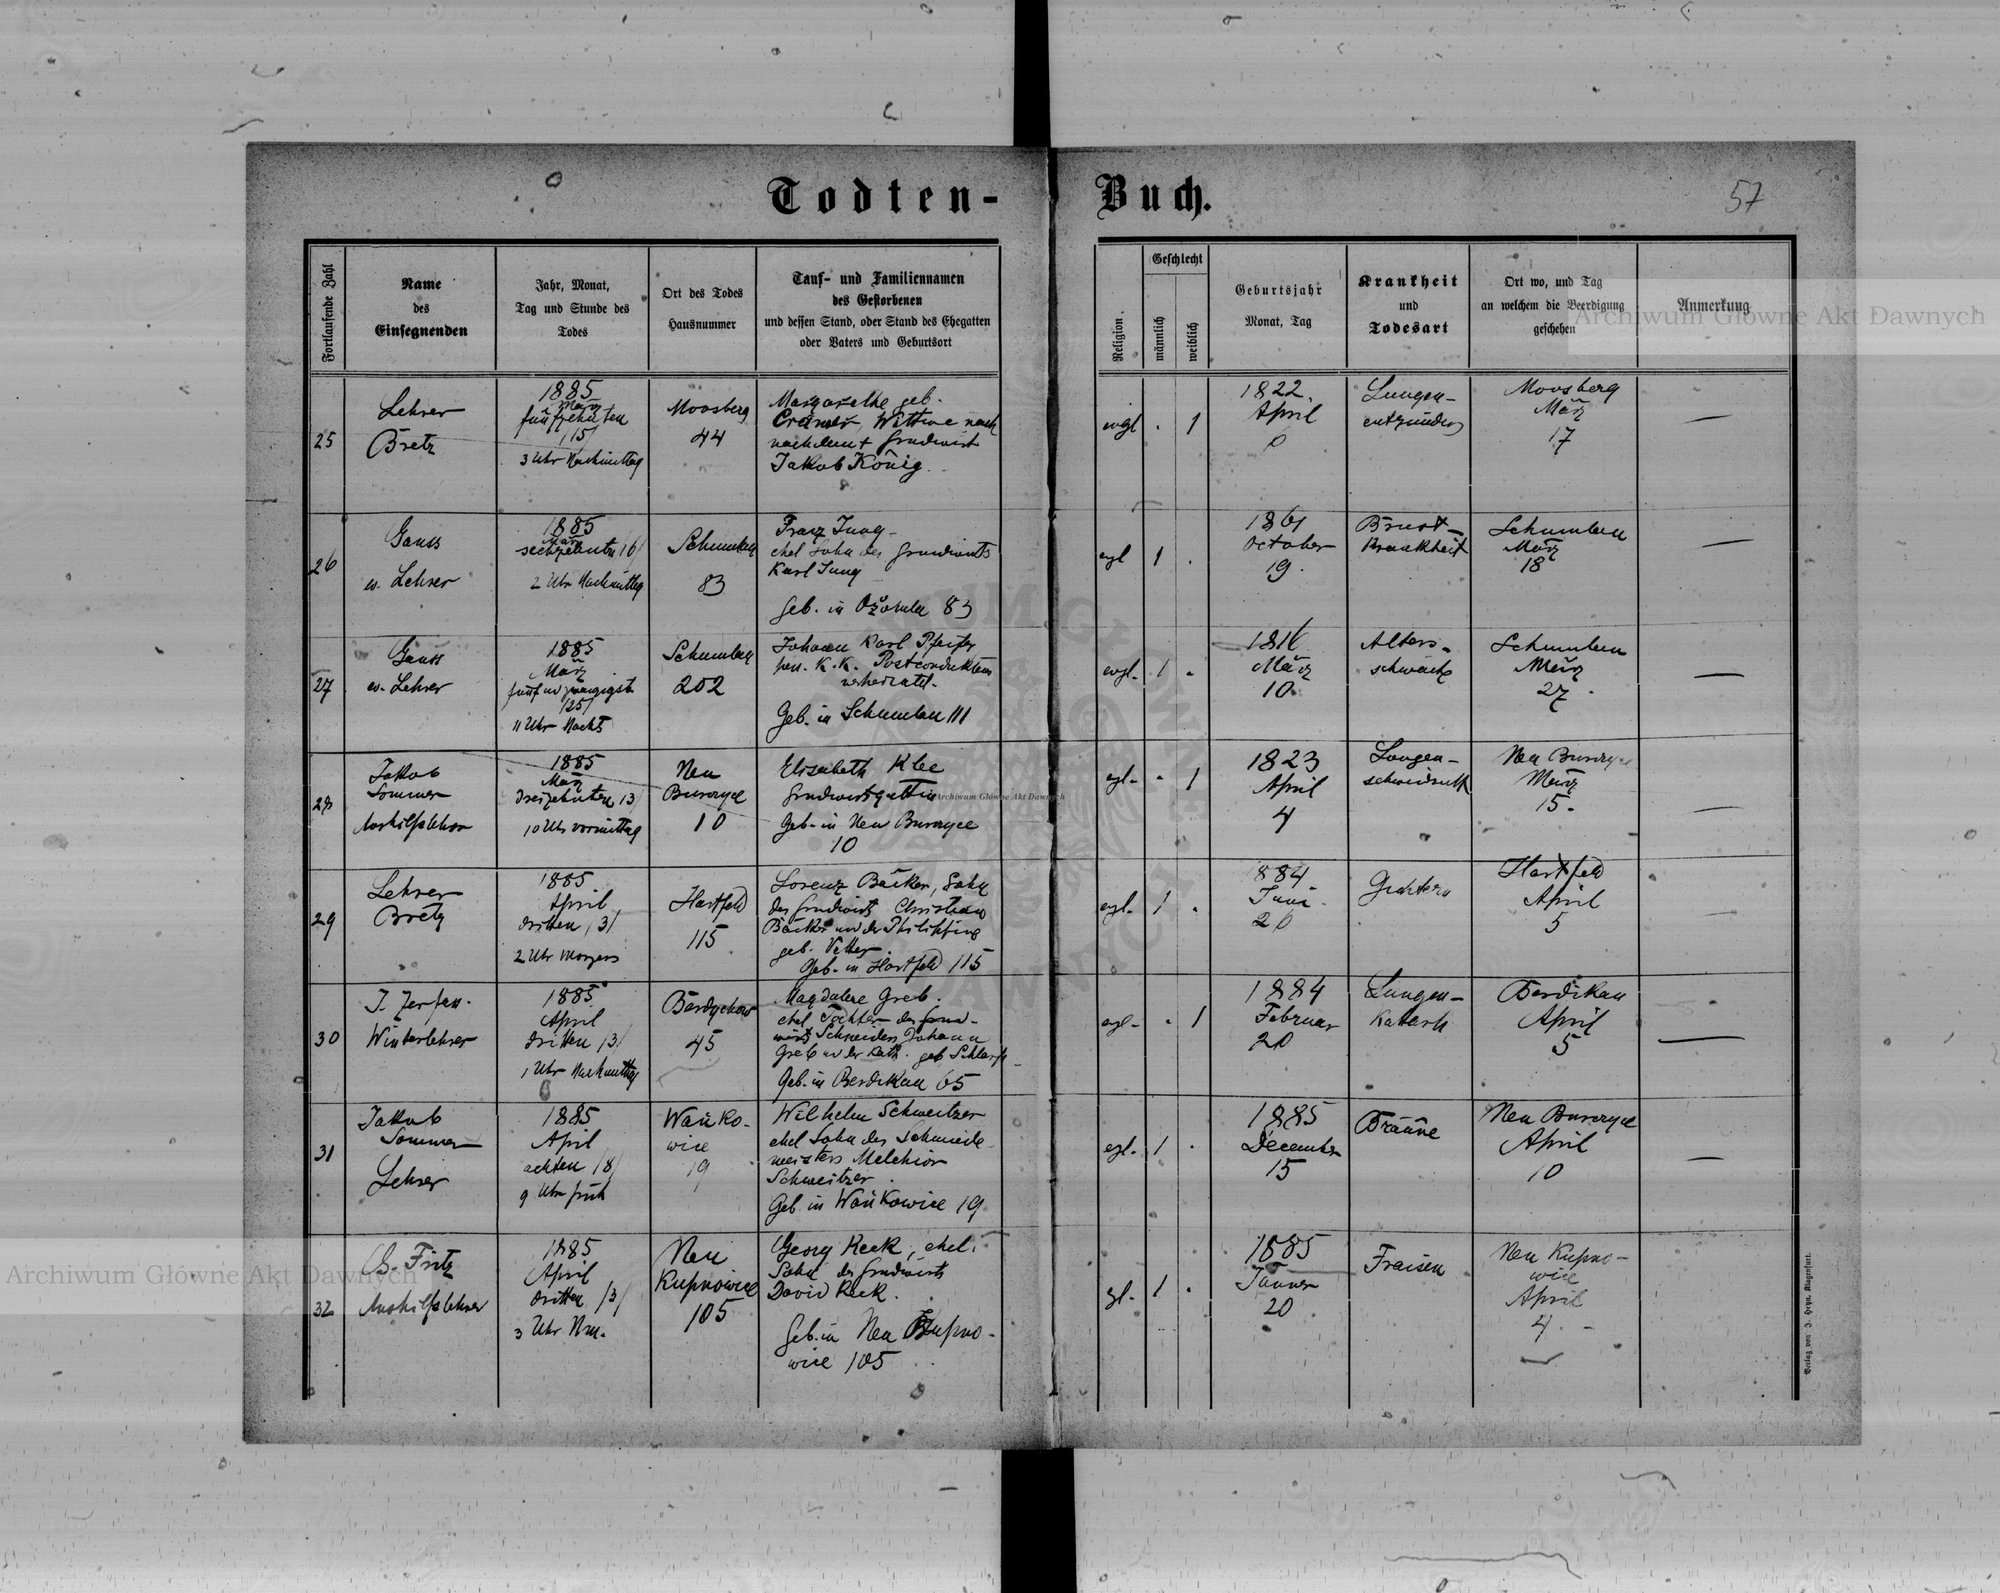 Todten-Buch.
57
Fortlaufende Zahl
Name
des
Einsegnenden
Jahr, Monat,
Tag und Stunde des
Todes
Ort des Todes
Hausnummer
Tauf- und Familiennamen
des Gestorbenen
und dessen Stand, oder Stand des Ehegatten
oder Vaters und Geburtsort
Religion.
Geschlecht
männlich
weiblich
Geburtsjahr
Monat, Tag
Krankheit
und
Todesart
Ort wo, und Tag
an welchem die Beerdigung
geschehen
Anmerkung
25
Lehrer
Bretz
1885
März
fünfzehnten
/15/
3 Uhr Nachmittag
Moosberg
44
Margarethe geb.
Cramer, Wittwe nach
nach dem + Grundwirt
Jakob König
evgl
1
1822.
April
Lungen-
entzündung
Moosberg
März
17
26
Gauss
ev. Lehrer
1885
März
sechzehnten /16/
2 Uhr Nachmittag
Schumlau
83
Franz Jung
ehel Sohn des Grundwirts
Karl Jung
geb. in Ožomla 83
egl
1
1861
October
19.
Brust-
Krankheit
Schumlau
März
18
27
Gauss
ev. Lehrer
1885
März
fünf und zwanzigst
/25/
11 Uhr Nachts
Schumlau
202
Johann Karl Pfeifer
pen. K.K. Postconducteur
verheiratet.
Geb. in Schumlau 111
evgl.
1
1816
März
10.
Alters-
schwäche
Schumlau
März
27.
28
Jakob
Sommer
Aushilfslehrer
1885
März
dreizehnten 13/
10 Uhr vormittag
Neu
Burczyce
10
Elisabeth Klee
Grundwirtsgattin
Geb. in Neu Burczyce
10
egl.
1
1823
April
4
Lungen-
schwindsucht
Neu Burczyce
März
15.
29
Lehrer
Bretz
1885
April
dritten /3/
2 Uhr Morgens
Hartfeld
115
Lorenz Bäcker, Sohn
des Grundwirts Christian
Bäcker und der Philippine
geb. Vetter.
Geb. in Hartfeld 115
egl.
1
1884
Juni
Hartfeld
April
5
30
Winterlehrer
1885
April
dritten /3/
1 Uhr Nachmittag
Berdychow
45
Magdalene Greb.
ehel Tochter des Grund-
wirts Schneiders Johann
Greb und der Kath. geb
Geb. in Berdikau 65
egl.
1
1884
Februar
20
Lungen-
Katarh
Berdikau
April
5
31
Jakob
Sommer
Lehrer
1885
April
achten /8/
9 Uhr früh
Wańko-
wice
19
Wilhelm Schweitzer
ehel Sohn des Schmiede-
meisters Melchior
Schweitzer
Geb in Wańkowice 19
egl.
1
1885
December
15
Bräune
Neu Burczyce
April
10
32
Fritz
Aushilfslehrer
1885
April
dritten /3/
3 Uhr Nm.
Neu
Kupnowice
105
Georg Keck, ehel.
Sohn des Grundwirts
David Keck.
Geb. in Neu Kupno-
wice 105
gl.
1
1885
Jänner
20
Fraisen
Neu Kupno-
wice
April
4.
Verlag von J. Heyn, Klagenfurt.
Archiwum Główne Akt Dawnych
Archiwum Główne Akt Dawnych
Archiwum Główne Akt Dawnych